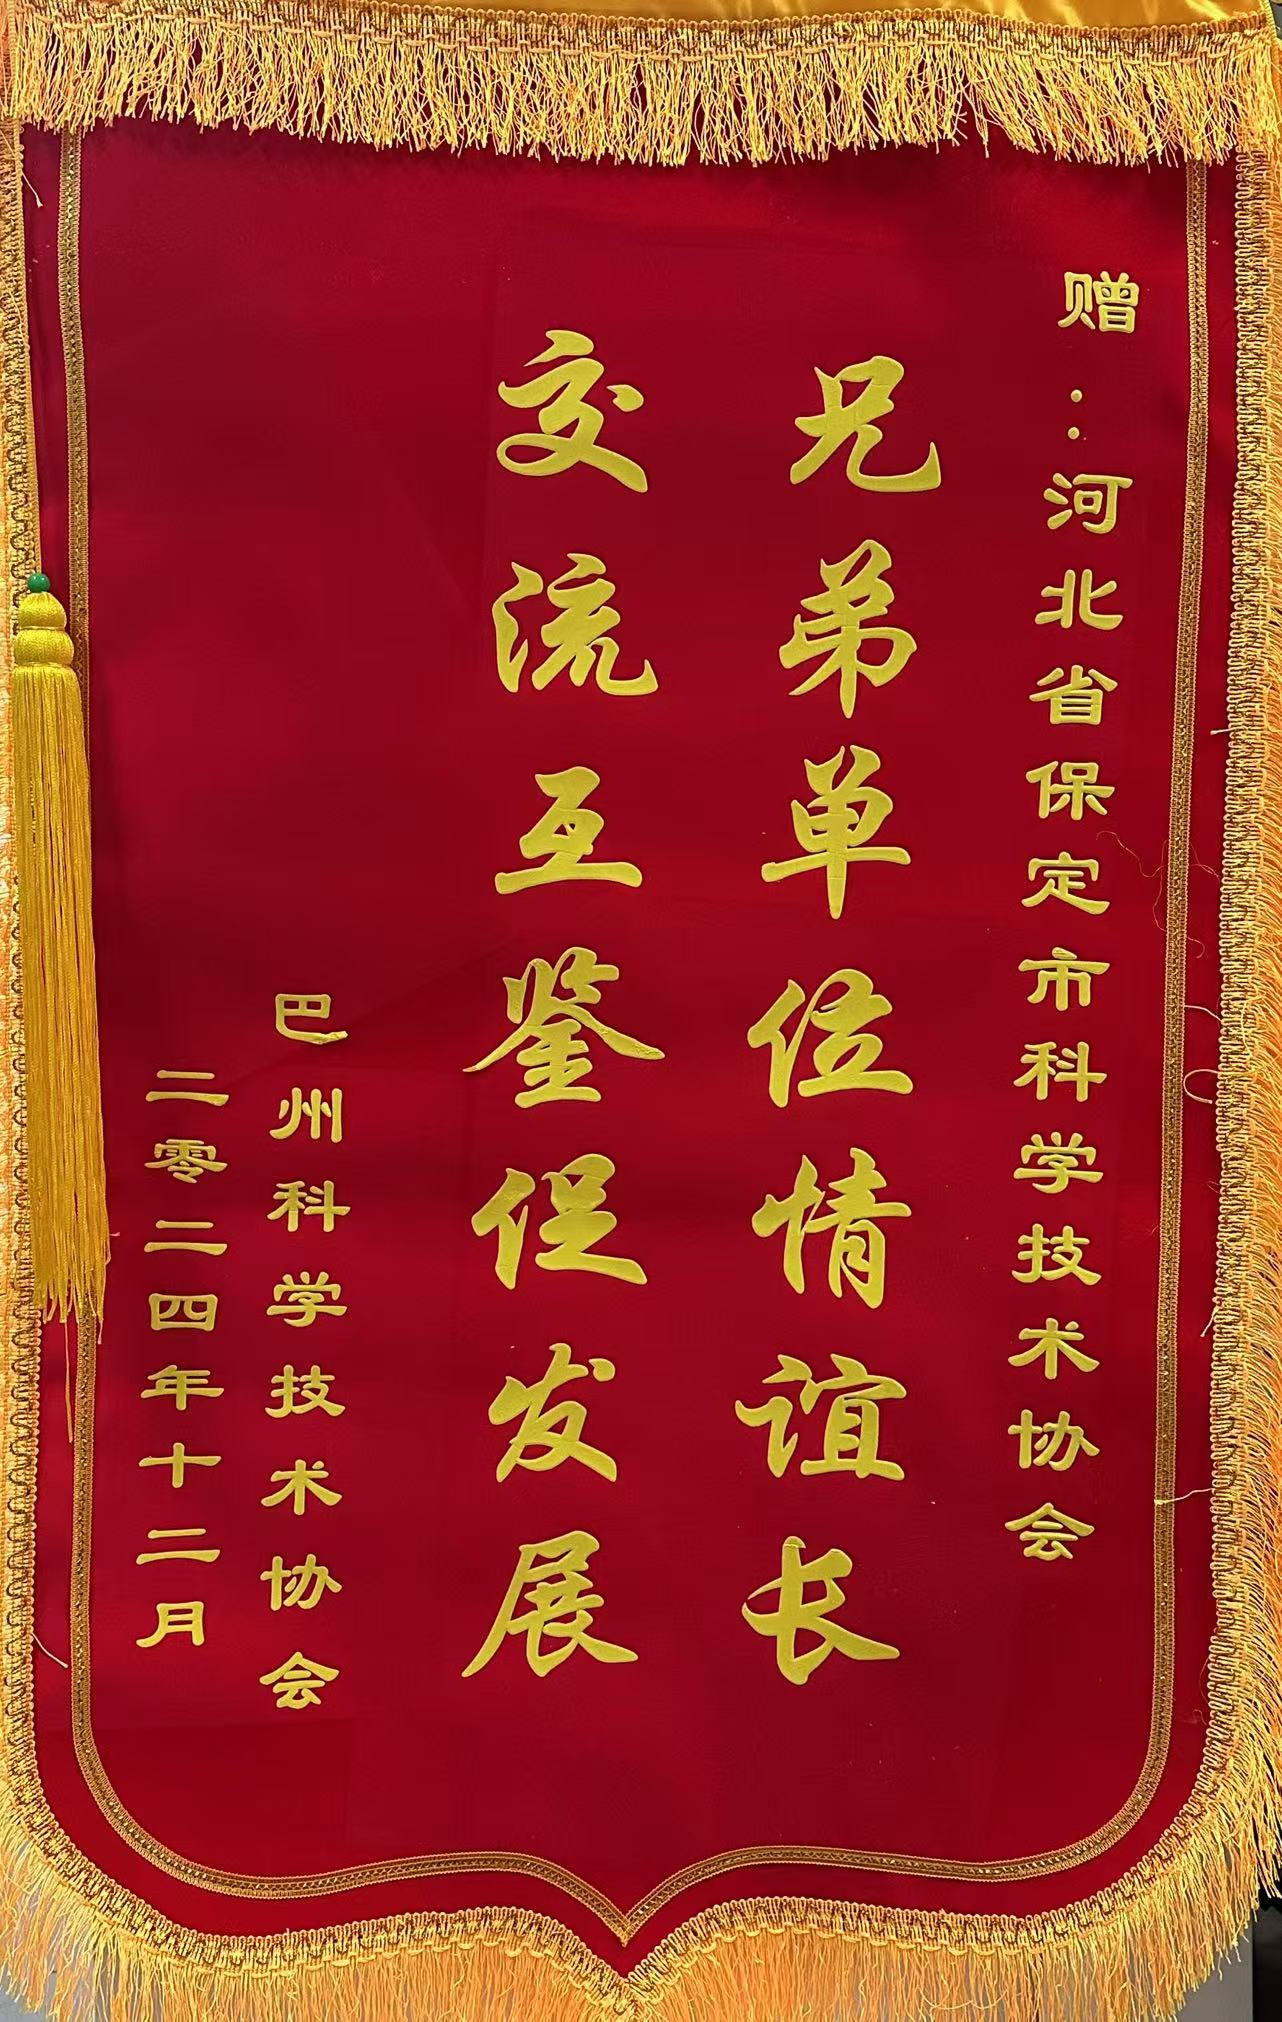 赠：河北省保定市科学技术协会
兄弟单位情谊长
交流互鉴促发展
巴州科学技术协会
二零二四年十二月